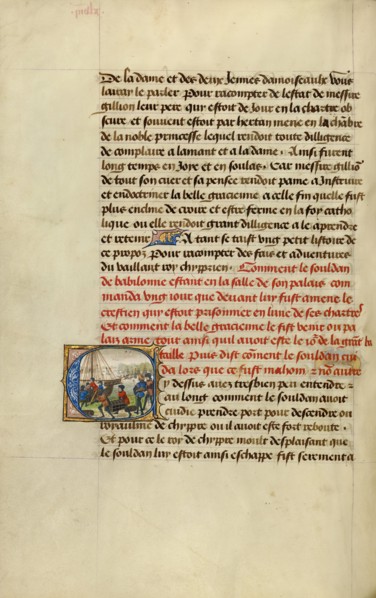 De la dame et des deux Jennes damoiseaulx vous
lairay le parler Pour racompter de lestat de messire
gillion leur pere qui estoit de Jour en la chartre ob
scure et souvent estoit par hertan mene en la chabre
de la noble princesse lequel rendoit toute dilligence
de complaire a lamant et a la dame. Ainsi furent
long temps en Joye et en soulas. Car messire gillion
de tout son cuer et sa pensee rendoit paine a Instruire
et endoctriner la belle gracienne a celle fin quelle fust
plus encline de croire et estre ferme en la foy catho
lique ou elle rendoit grant dilligence a le aprendre
et retenir A tant se taist ung petit listoire de
ce propoz Pour racompter des fais et adventures
du vaillant roy chyprien. Comment le souldan
de babilonne estant en la salle de son palais com
manda ung iour que devant luy fust amene le
crestien quy estoit prisonnier en lune de ses chartres
Et comment la belle gracienne le fist venir ou pa
lais arme tout ainsi quil avoit este le io' de la grant ba
taille Puis dist coment le souldan cui
da lors que ce fust mahom
y dessus avez tresbien peu entendre
au long comment le souldan avoit
cuidie prendre port pour descendre ou
royaulme de chyppre ou il avoit este fort reboute.
Et pour ce le roy de chyppre moult desplaisant que
le souldan luy estoit ainsi eschappe fist serement a